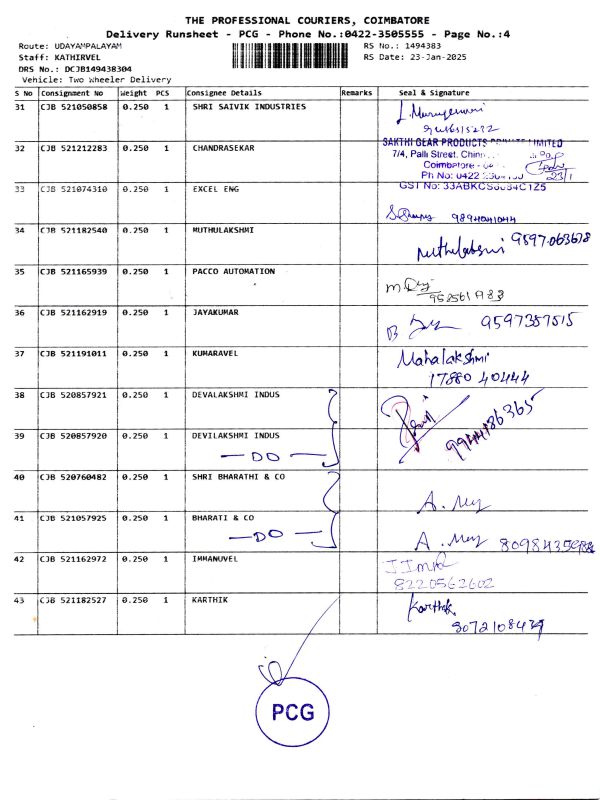 THE PROFESSIONAL COURIERS, COIMBATORE
Delivery Runsheet - PCG - Phone No.:0422-3505555 - Page No.:4
Route: UDAYAMPALAYAM
RS No.: 1494383
Staff: KATHIRVEL
RS Date: 23-Jan-2025
DRS No.: DCJB149438304
Vehicle: Two Wheeler Delivery
S No Consignment No Weight PCS Consignee Details Remarks Seal & Signature
31 CJB 521050858 0.250 1 SHRI SAIVIK INDUSTRIES
32 CJB 521212283 0.250 1 CHANDRASEKAR
SAKTHI GEAR PRODUCTS PRIVATE LIMITED
7/4, Palli Street,
Coimbatore -
Ph No: 0422
23/1
GST No: 33ABKCS
33 CJB 521074310 0.250 1 EXCEL ENG
9894041044
34 CJB 521182540 0.250 1 MUTHULAKSHMI
Muthulakshmi 9597063678
35 CJB 521165939 0.250 1 PACCO AUTOMATION
36 CJB 521162919 0.250 1 JAYAKUMAR
9597357515
37 CJB 521191011 0.250 1 KUMARAVEL
Mahalakshmi
17880 40444
38 CJB 520857921 0.250 1 DEVALAKSHMI INDUS
9944486365
39 CJB 520857920 0.250 1 DEVILAKSHMI INDUS
— DO —
40 CJB 520760482 0.250 1 SHRI BHARATHI & CO
41 CJB 521057925 0.250 1 BHARATI & CO
— DO —
42 CJB 521162972 0.250 1 IMMANUVEL
8220562602
43 CJB 521182527 0.250 1 KARTHIK
Karthik
PCG